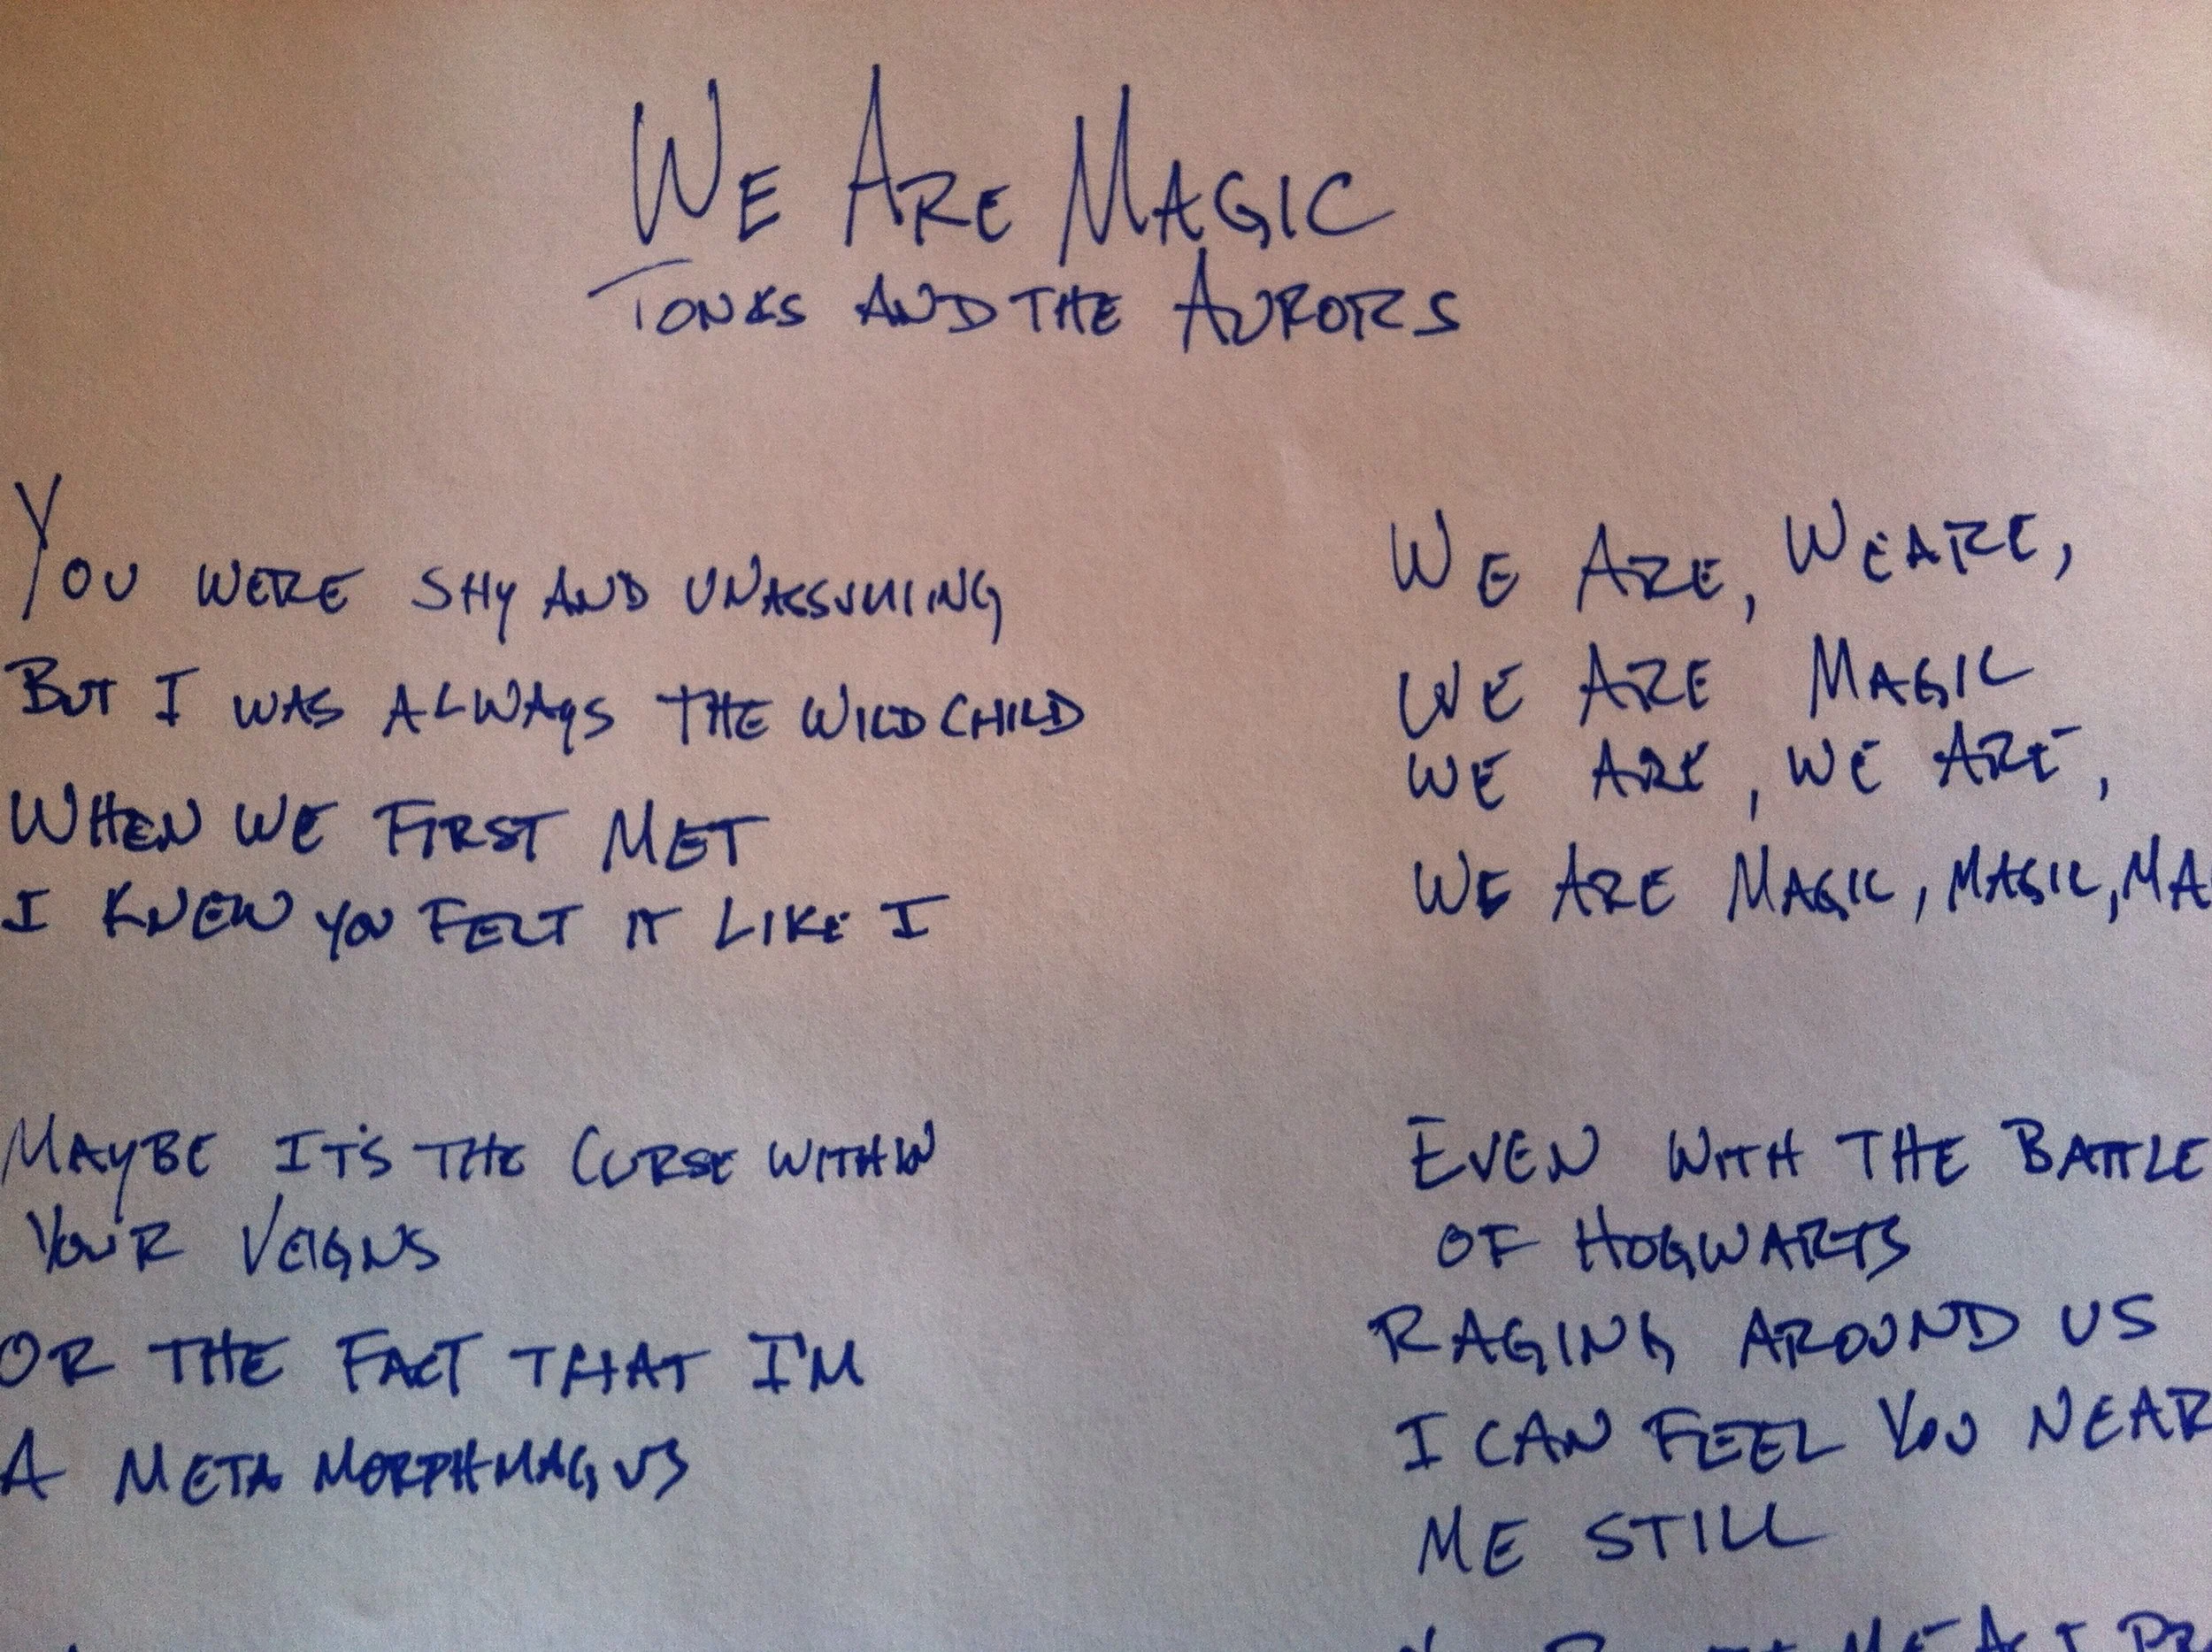 WE ARE MAGIC
TONKS AND THE AURORS
YOU WERE SHY AND UNASSUMING
BUT I WAS ALWAYS THE WILD CHILD
WHEN WE FIRST MET
I KNEW YOU FELT IT LIKE I
MAYBE IT'S THE CURSE WITHIN
YOUR VEIGNS
OR THE FACT THAT I'M
A METAMORPHMAGUS
WE ARE, WE ARE,
WE ARE MAGIC
WE ARE, WE ARE,
WE ARE MAGIC, MAGIC, MA
EVEN WITH THE BATTLE
OF HOGWARTS
RAGING AROUND US
I CAN FEEL YOU NEAR
ME STILL